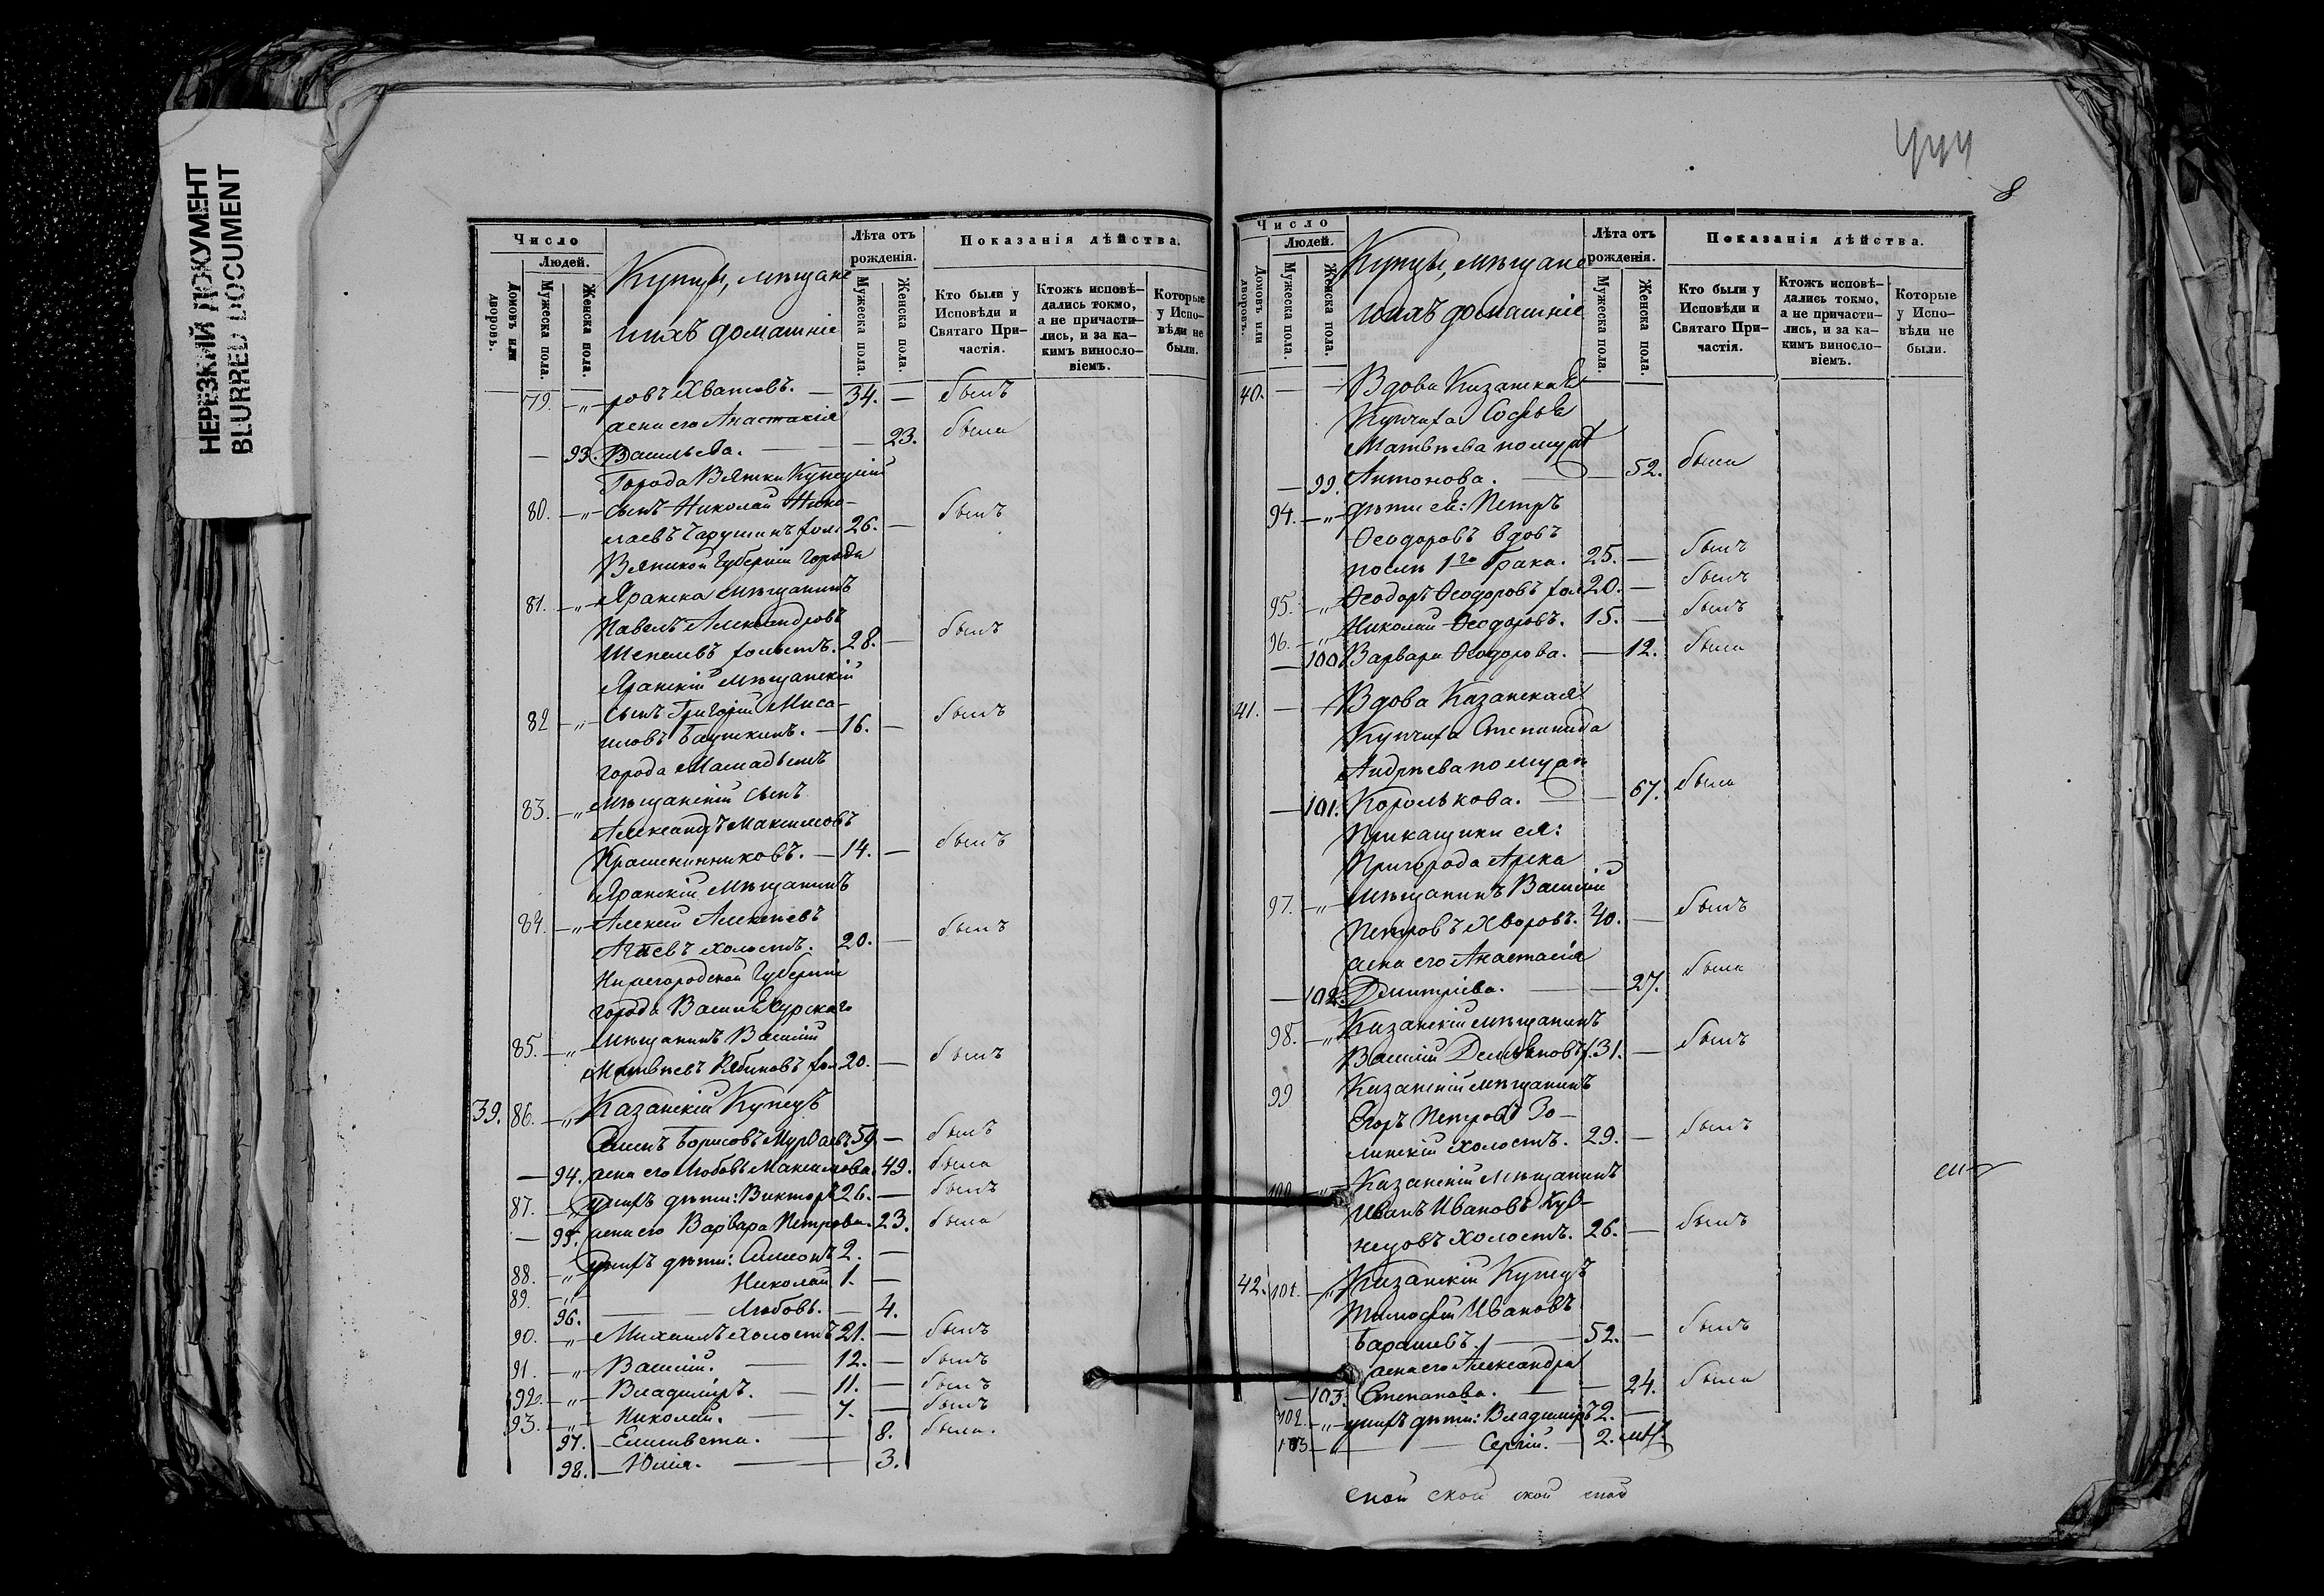 НЕРЕЗКИЙ ДОКУМЕНТ
BLURRED DOCUMENT
Число
Людей.
Домовъ или дворовъ.
Мужеска пола.
Женска пола.
Купцы, мѣщане
и ихъ домашніе
Лѣта отъ рожденія.
Мужеска пола.
Женска пола.
Показанія дѣйства.
Кто были у Исповѣди и Святаго Причастія.
Ктожъ исповѣдались токмо, а не причастились, и за какимъ винословіемъ.
Которые у Исповѣди не были.
79. —„— ровъ Хватовъ. — 34. — былъ
жена его Анастасія
— 93. Васильева. — — 23. была
Города Вятки Купеческій
80. —„— сынъ Николай Нико-
лаевъ Чарушинъ хол. 26. — былъ
Вятской Губерніи города
81. —„— Яранска мѣщанинъ
Павелъ Александровъ
холостъ. 28. — былъ
Яранскій мѣщанскій
82 —„— сынъ Григорій
— 16. — былъ
города Мамадышъ
83. —„— мѣщанскій сынъ
Александръ Максимовъ
Крашенинниковъ. — 14. — былъ
Яранскій мѣщанинъ
84. —„— Алексій Алексіевъ
Агіевъ холостъ. 20. — былъ
Нижегородской Губерніи
города Василь Сурскаго
85. —„— мѣщанинъ Василій
Матвѣевъ Рябиновъ хол. 20. — былъ
39. 86. —„— Казанскій Купецъ
Борисовъ 59 — былъ
— 94. жена его Любовь Максимова. 49. была
87. —„— у нихъ дѣти: Викторъ 26. — былъ
— 95. жена его Варвара Петрова. 23. была
88. —„— у нихъ дѣти: Симеонъ 2. —
89. —„— Николай 1. —
96. — — Любовь. — 4.
90. —„— Михаилъ холостъ 21. — былъ
91. —„— Василій. — 12. — былъ
92. —„— Владиміръ. — 11. — былъ
93. —„— Николай. — 7. — былъ
97. — Елисавета. — 8. была.
98. — Юлія. — 3.
8
Число
Людей.
Домовъ или дворовъ.
Мужеска пола.
Женска пола.
Купцы, мѣщане
и ихъ домашніе
Лѣта отъ рожденія.
Мужеска пола.
Женска пола.
Показанія дѣйства.
Кто были у Исповѣди и Святаго Причастія.
Ктожъ исповѣдались токмо, а не причастились, и за какимъ винословіемъ.
Которые у Исповѣди не были.
40. — — Вдова Казанская
Купчиха Софья
Матвѣева по мужѣ
— 99. Антонова. — — 52. была
94. —„— дѣти ея: Петръ
Ѳеодоровъ вдовъ
послѣ 1го брака. 25. — былъ
95. —„— Ѳеодоръ Ѳеодоровъ хол 20. — былъ
96. —„— Николай Ѳеодоровъ. 15. — былъ
— 100 Варвара Ѳеодорова. — 12. была
41. — — Вдова Казанская
Купчиха Степанида
Андрѣева по мужѣ
— 101. Королькова. — — 67. была
Прикащики ея:
Пригорода Арска
97. —„— мѣщанинъ Василій
Петровъ Хворовъ. 40. — былъ
жена его Анастасія
— 102. Дмитріева. — — 27. была
98. —„— Казанскій мѣщанинъ
Василій Демьяновъ х. 31. — былъ
99 Казанскій мѣщанинъ
Егоръ Петровъ Зо-
линскій холостъ. 29. — былъ
100 —„— Казанскій мѣщанинъ
Иванъ Ивановъ Куз-
нецовъ холостъ. 26. — былъ
42. 101. —„— Казанскій Купецъ
Тимофей Ивановъ
Барашевъ. — 52. — былъ
жена его Александра
— 103. Степанова. — — 24. была
102. —„— у нихъ дѣти: Владиміръ 2. —
103 —„— Сергій. — 2.
ской ской ской